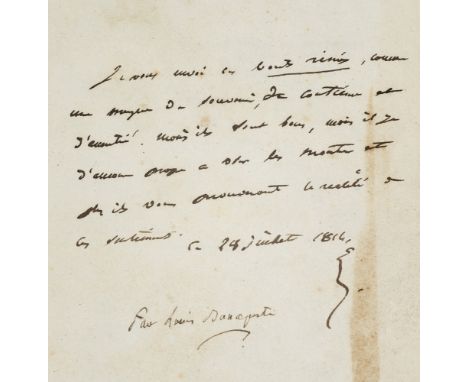 Je vous envoi ces bouts rimés, comme
une marque de souvenir, de confiance et
d'amitié. moins ils sont bons, mois il y a
d'amour propre a les montrer et
plus ils vous prouveront la réalité de
ces sentimens.
ce 28 juillet 1816.
Par Louis Bonaparte